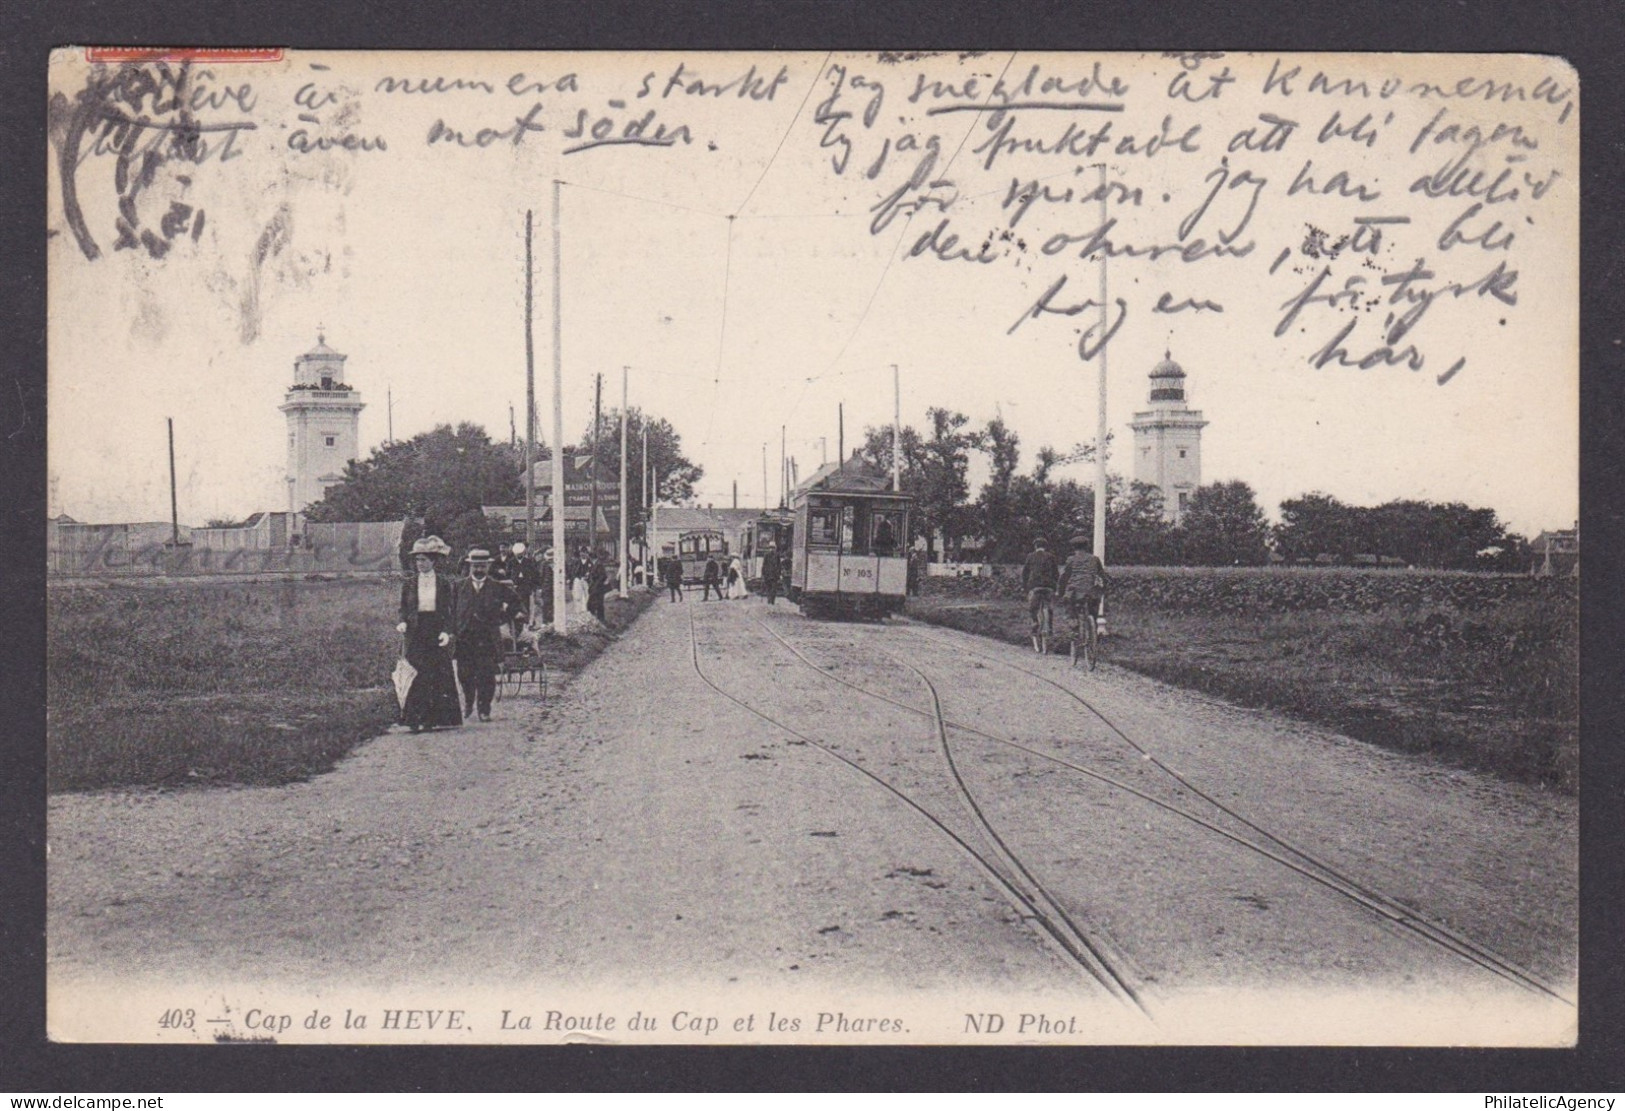 är numera starkt
även mot söder.
Jag sneglade åt kanonerna,
ty jag fruktade att bli tagen
för spion. Jag har alltid
den otursen, att bli
tagen för tysk
här,
MAISON
kanoner
No 105
403 — Cap de la HEVE. La Route du Cap et les Phares. ND Phot.
PhilatelicAgency